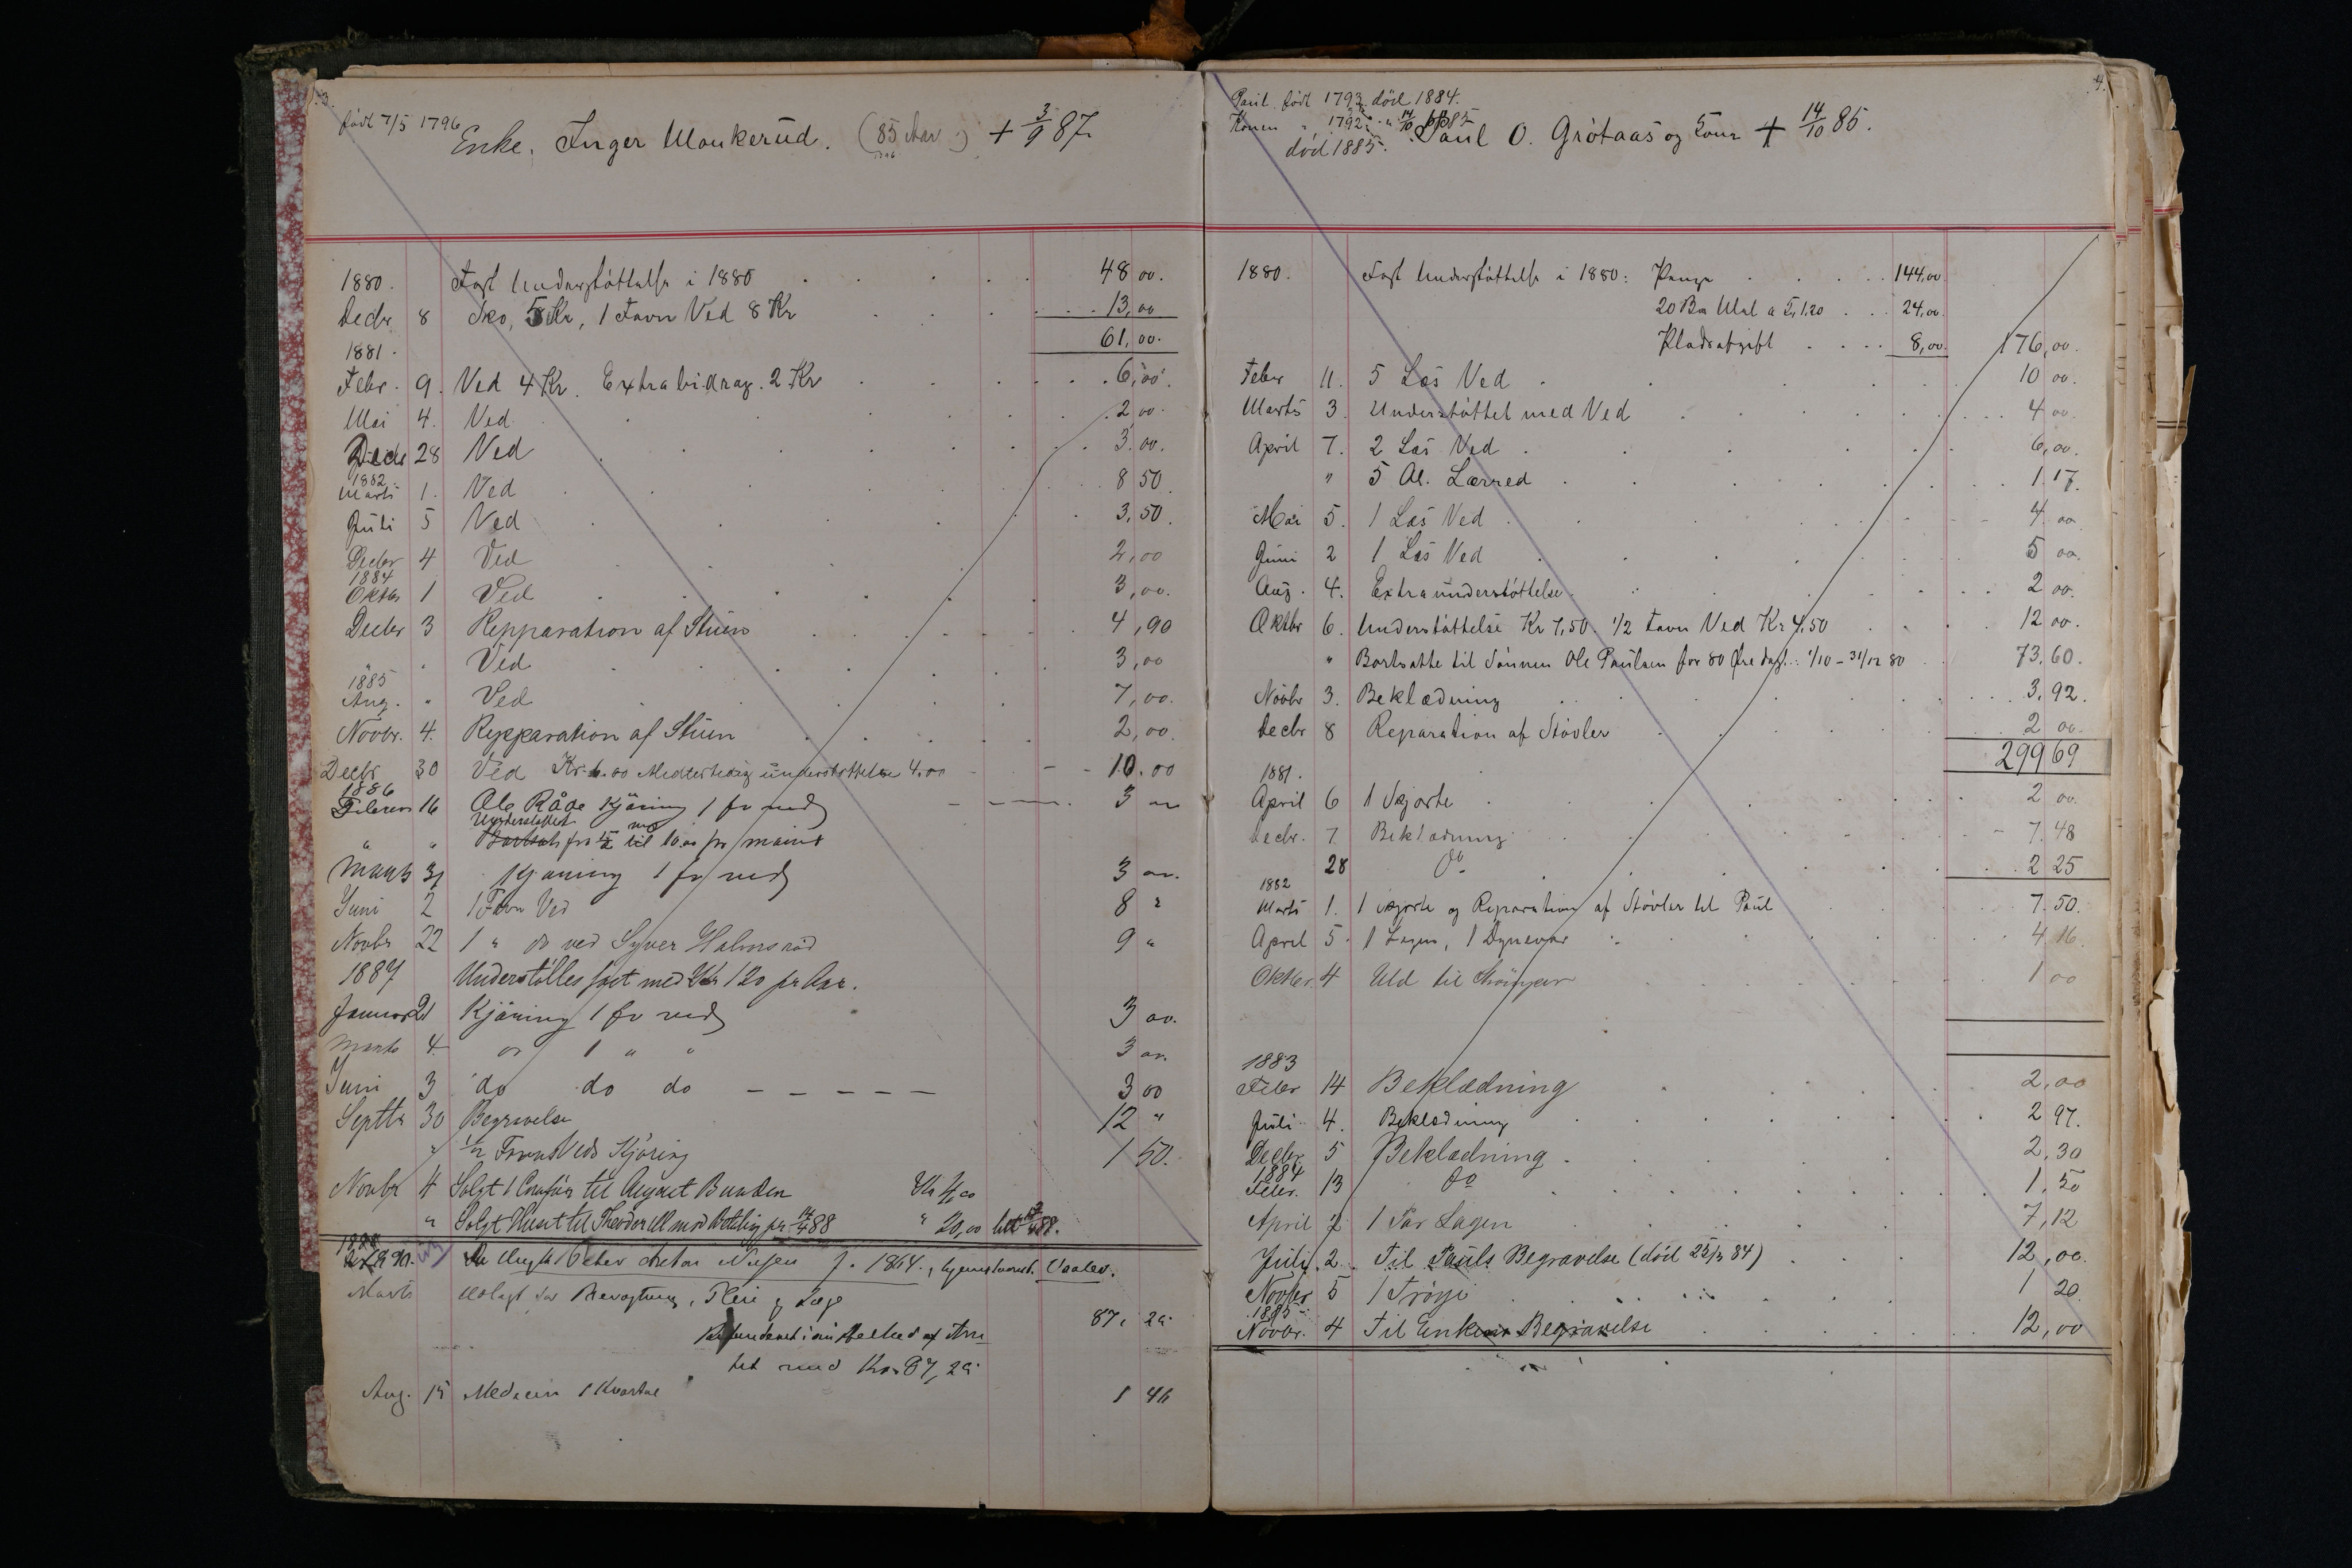 3.
født 7/5 1796
Enke. Inger Maukerud. (85 Aar) + 3/9 87
1796
1880. Fast Understøttelse i 1880 48 00.
Decbr 8 Sko, 5 Kr, 1 Favn Ved 8 Kr 13,00
61,00.
1881.
Febr. 9. Ved 4 Kr. Extrabidrag. 2 Kr 6,00.
Mai 4. Ved 2 00.
Decbr 28 Ved 3.00.
1882.
Marts 1. Ved 8 50
Juli 5 Ved 3,50.
Decbr 4 Ved 2,00
1884
Oktbr 1 Ved 3,00.
Decbr 3 Repparation af Stuen 4,90
" " Ved 3,00
1885
Aug. " Ved 7,00.
Novbr. 4. Repparation af Stuen 2,00.
Decbr 30 Ved Kr. 6.00 Midlertidig understøttelse 4.00 10.00
1886
Februar 16 Ole Råge Kjøring 1 fv ved 3 00
Understøttet
" " Bortsat fra 15/2 til 10.00 pr maint
Marts 31 Kjøring 1 fv ved 3 00.
Juni 2 1 Favn Ved 8 "
Novbr 22 1 " do ved Syver Halmsrød 9 "
1887 Understøttes fast med Kr 120 pr Aar.
Januar 21 Kjøring 1 fv ved 3 00.
Marts 4 do 1 " " 3 00.
Juni 3 do do do 3 00
Septbr 30 Begravelse 12 "
" 1/2 Favn Veds Kjøring 1 50.
Novbr 4 Solgt 1 til August Bunden Kr 4,00
" Solgt Huset til Theodor M mod Betaling pr 14/4 88 " 20,00 14/4 88.
1888
1890. August Peter Anton f. 1864. Vaaler.
Marts Udlagt for Bevogtning, Pleie og Læge 87. 29.
Refunderet af Am-
tet med Kr 87,29
Aug. 15 Medicin 1 Kvartal 1 46
4.
Paul født 1793. død 1884.
Konen " 1792. " 14/10 1885
død 1885. Paul O. Grøtaas og Kone + 14/10 85.
1880. Fast Understøttelse i 1880: Penge 144,00
20 Bm Mel a Kr 1,20 24,00.
Pladsafgift 8,00. 176,00.
Febr 11. 5 Læs Ved 10 00.
Marts 3. Understøttet med Ved 4 00.
April 7. 2 Læs Ved 6,00.
" 5 Al. Lærred 1.17.
Mai 5. 1 Læs Ved 4 00
Juni 2 1 Læs Ved 5 00.
Aug. 4. Extraunderstøttelse 2 00.
Oktbr 6. Understøttelse Kr 7,50. 1/2 Favn Ved Kr 4,50 12 00.
" Bortsatte til Sønnen Ole Paulsen for 80 Øre dagl. 1/10 - 31/12 80 73.60.
Novbr 3. Beklædning 3.92.
Decbr 8 Reparation af Støvler 2 00.
299 69
1881.
April 6 1 Skjorte 2 00.
Decbr. 7. Beklædning 7.48
28 do 2 25
1882
Marts 1. 1 Skjorte og Reparation af Støvler til Paul 7.50.
April 5. 1 Lagen, 1 Dynevar 4 16.
Oktbr. 4 Uld til Strømper 1 00
1883
Febr 14 Beklædning 2,00
Juli 4. Beklædning 2 97.
Decbr 5 Beklædning 2,30
1884
Febr. 13 do 1,50
April 1 Par Lagen 7,12
Juli 2. Til Pauls Begravelse (død 84) 12,00.
Novber 5 1 Trøye 1 20.
1885
Novbr. 4 Til Enkens Begravelse 12,00